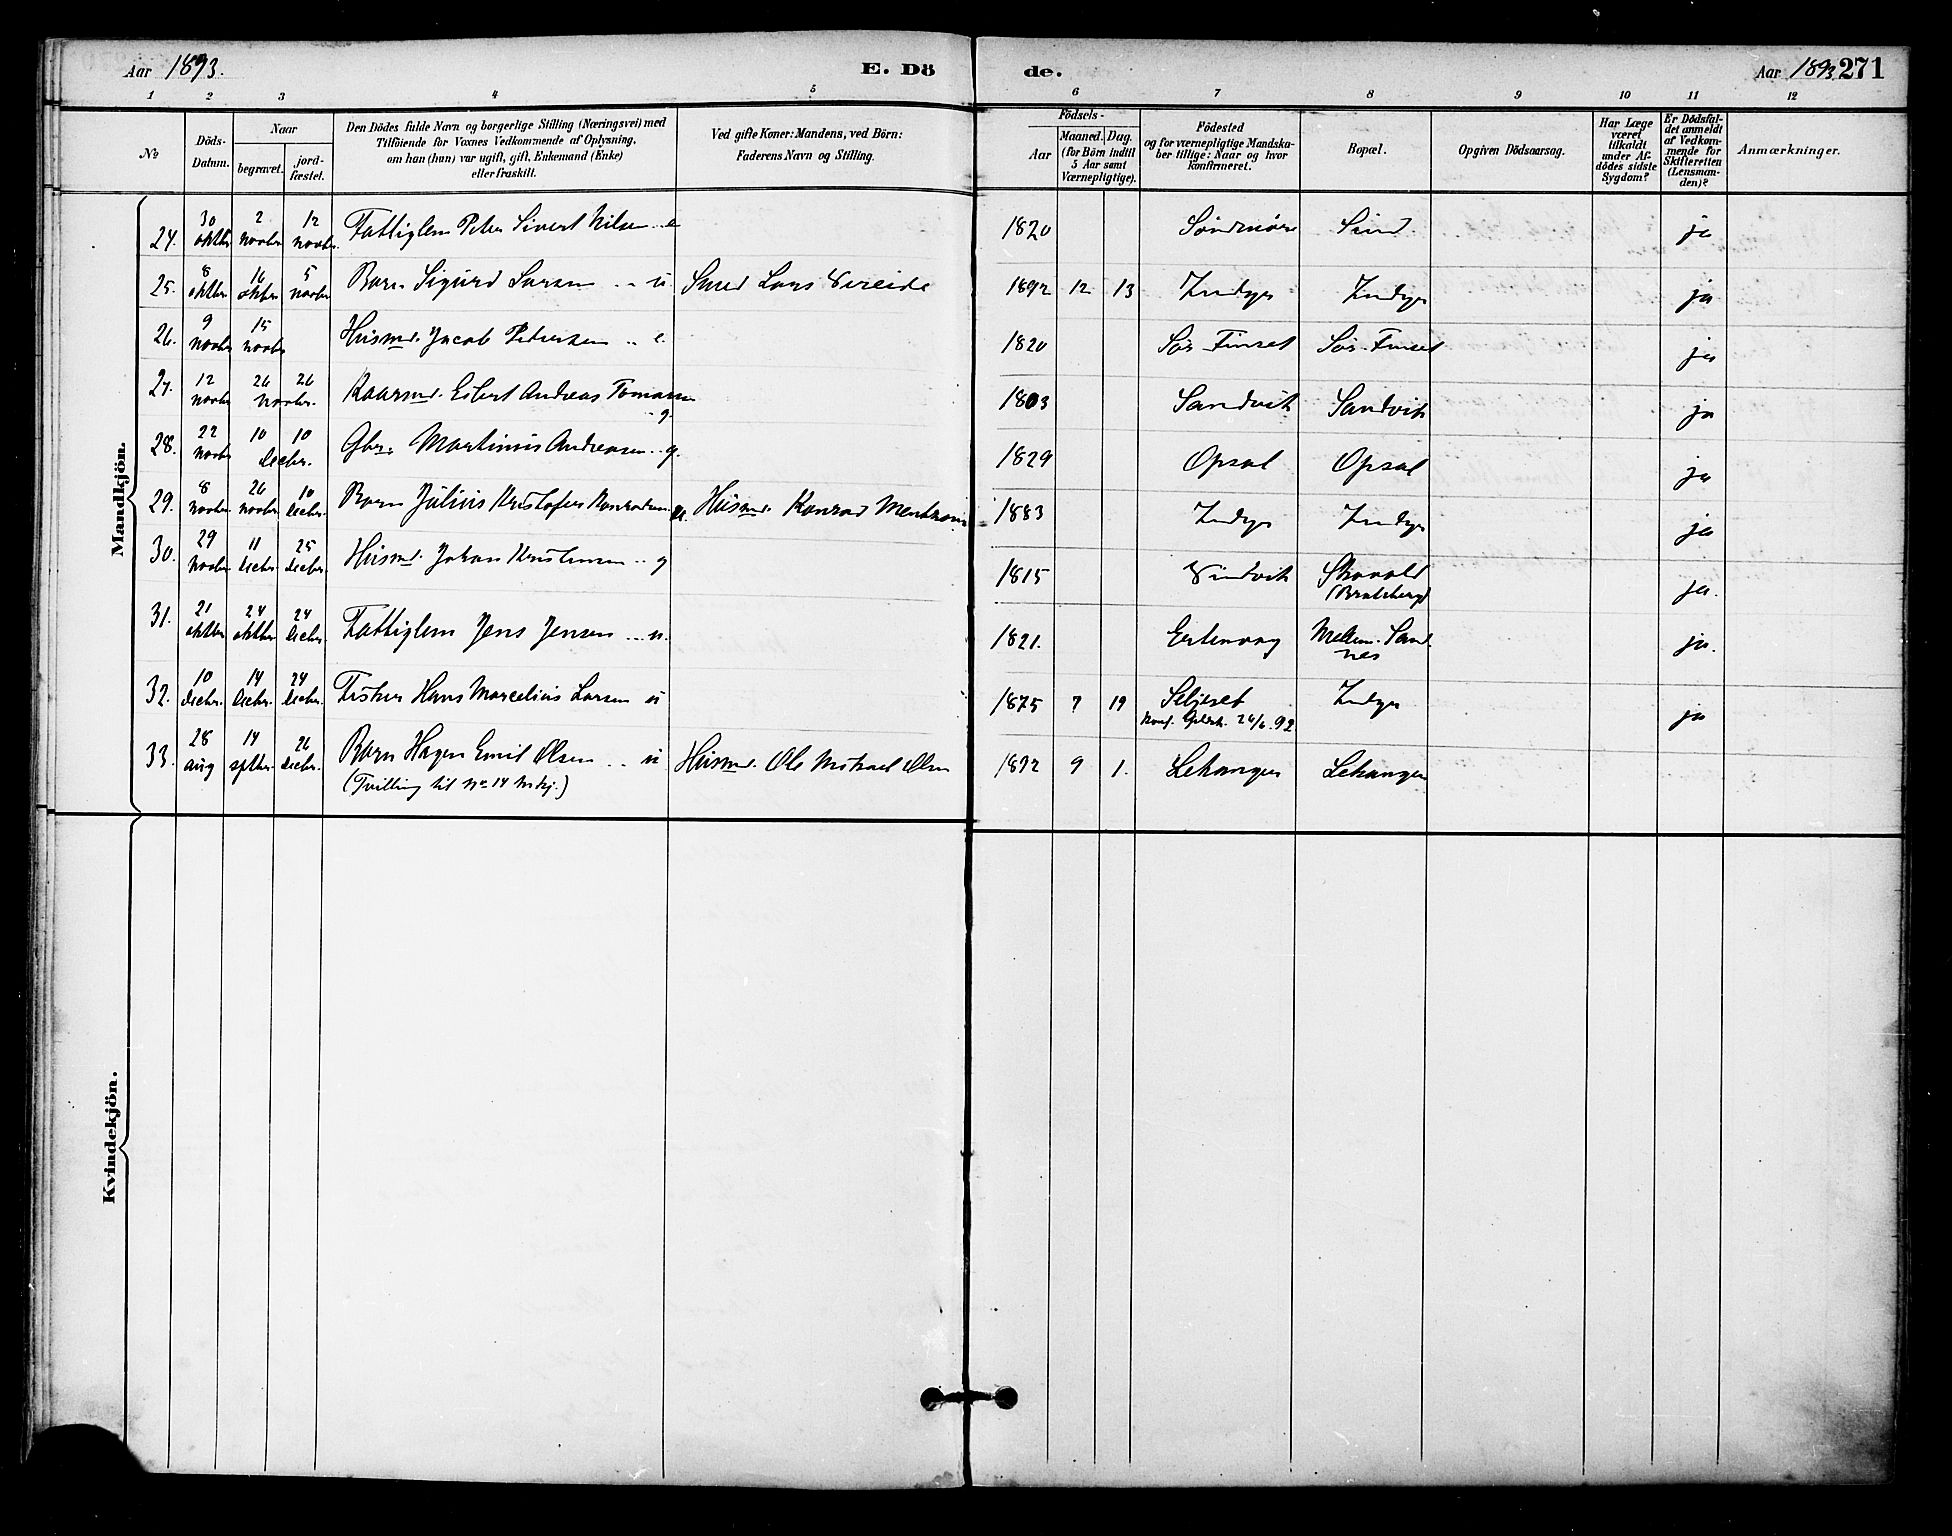 Aar 1893. E. Dö
de. Aar 1893 271
1 2 3 4 5 6 7 8 9 10 11 12
No
Döds-Datum.
Naar
begravet.
jord-fæstet.
Den Dödes fulde Navn og borgerlige Stilling (Næringsvei) med
Tilföiende for Voxnes Vedkommende af Oplysning,
om han (hun) var ugift, gift, Enkemand (Enke)
eller fraskilt.
Ved gifte Koner: Mandens, ved Börn:
Faderens Navn og Stilling.
Födsels-
Aar
Maaned. Dag.
(for Börn indtil
5 Aar samt
Værnepligtige).
Födested
og for værnepligtige Mandska-
ber tillige: Naar og hvor
konfirmeret.
Bopæl.
Opgiven Dödsaarsag.
Har Læge
været
tilkaldt
under Af-
dödes sidste
Sygdom?
Er Dödsfal-
det anmeldt
af Vedkom-
mende for
Skifteretten
(Lensman-
den)?
Anmærkninger.
Mandkjön.
24. 30 oktbr 2 novbr 12 novbr. Fattiglem Peter Sivert Nilsen .. e 1820 Söndmöre Sund ja
25. 8 oktbr 16 oktbr 5 novbr Barn Sigurd Larsen .. u Lars 1892 12 13 Indyr Indyr ja
26. 9 novbr 15 novbr Husmd. Jacob Petersen .. e. 1820 Sör-Finset Sör-Finset ja
27. 12 novbr 26 26 novbr. Kaarmd. Eilert Andreas Tomassen .. g 1803 Sandvik Sandvik ja
28. 22 novbr 10 10 decbr. Gbr. Martinus Andreasen .. g. 1829 Opsal Opsal ja
29. 8 novbr. 26 novbr. 10 decbr. Barn Julius Kristofer Konradsen u. Husmd. Konrad 1883 Indyr Indyr ja
30. 29 novbr. 11 decbr. 25 decbr. Husmd. Johan Kristensen .. g 1815 Vindvik ja.
31. 21 oktbr 24 oktbr 24 decbr. Fattiglem Jens Jensen ... u. 1821. Sandnes ja.
32. 10 decbr. 14 decbr. 24 decbr. Fisker Hans Marcelius Larsen u 1875 7 19 Seljeset
Konf. 26/6 92 Indyr ja
33. 28 aug 14 sptbr. 26 decbr. Barn Hagen Emil Olsen .. u Husmd. Ole Mikael Olsen 1892 9 1. Lekanger Lekanger
(Tvilling til No 14 Mkj.)
Kvindekjön.